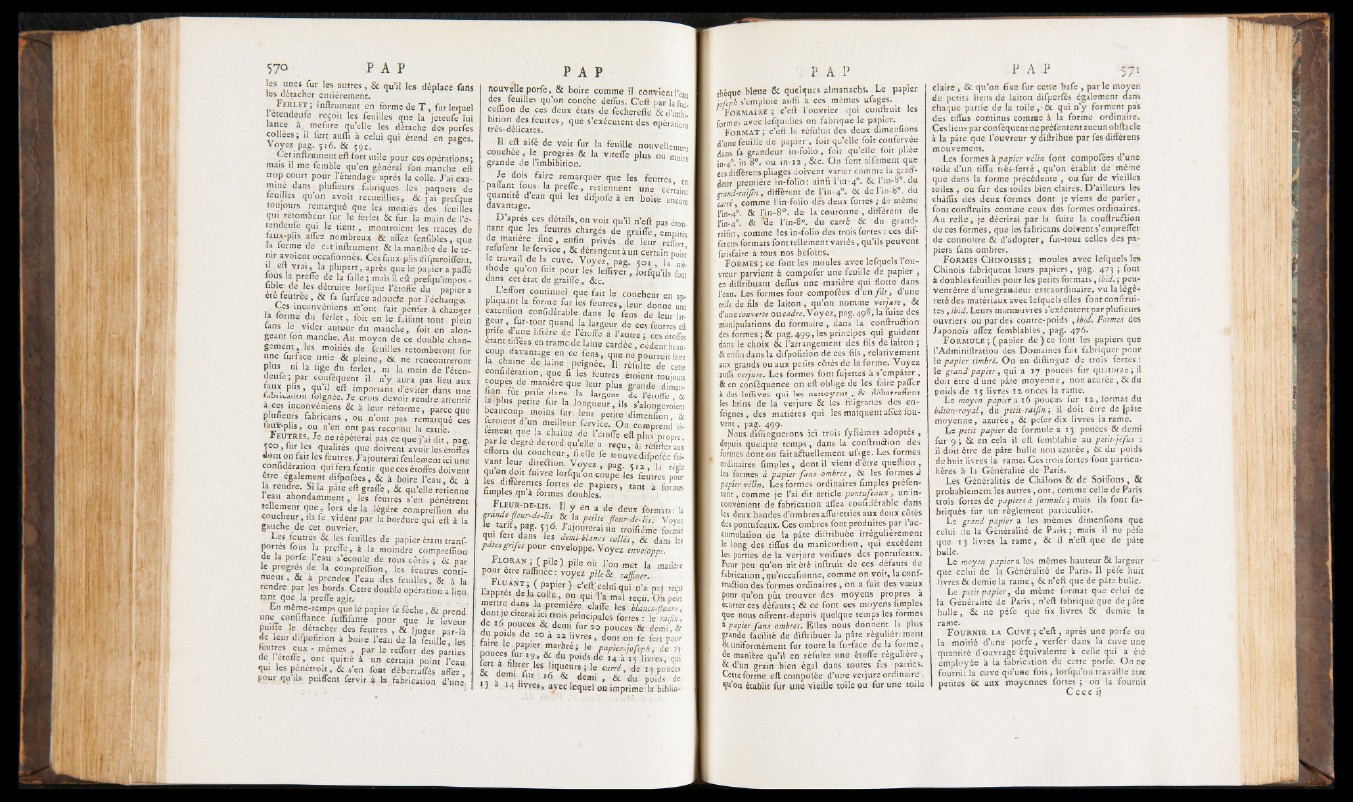 570 P A P
les unes sur les autres, & qu'il les déplace sans
les détacher entièrement.
FERLET; instrument en forme de T, sur lequel
l'étendeuse reçoit les feuilles que la jeteuse lui
lance à mesure qu'elle les détache des porses
collées; il sert aussi à celui qui étend en pages.
Voyez pag. 516. & 591.
Cet instrument est fort utile pour ces opérations;
mais il me semble qu'en général son manche est
trop court pour l'étendage après la colle. J'ai exa-
miné dans plusieurs fabriques les paquets de
feuilles qu'on avoit recueillies, & j'ai presque
toujours remarqué que les moitiés des feuilles
qui retombent sur le ferlet & sur la main de l'é-
tendeuse qui le tient, montroient les traces de
faux-plis assez nombreux & assez sensibles, que
la forme de cet instrument & la manière de le te-
nir avoient occasionnés. Ces faux-plis disparoissent,
il est vrai, la plupart, après que le papier a passé
sous la presse de la salle; mais il est presqu'impos-
sible de les détruire lorsque l'étoffe du papier a
été feutrée, & sa surface adoucie par l'échange.
Ces inconvéniens m'ont fait penser à changer
la forme du ferlet, soit en le faisant tout plein
sans le vider autour du manche, soit en alon-
geant son manche. Au moyen de ce double chan-
gement, les moitiés de feuilles retomberont sur
une surface unie & pleine, & ne rencontreront
plus ni la tige du ferlet, ni la main de l'éten-
deuse; par conséquent il n'y aura pas lieu aux
faux plis, qu'il est important d'éviter dans une
fabrication soignée. Je crois devoir rendre attentif
à ces inconvéniens & à leur réforme, parce que
plusieurs fabricans, ou n'ont pas remarqué ces
faux-plis, ou n'en ont pas reconnu la cause.
FEUTRES. Je ne répéterai pas ce que j'ai dit, pag.
500, sur les qualités que doivent avoir les étoffes
dont on fait les feutres. J'ajouterai seulement ici une
considération qui fera sentir que ces étoffes doivent
être également disposées, & à boire l'eau, & à
la rendre. Si la pâte est grasse, & qu'elle retienne
l'eau abondamment, les feutres s'en pénètrent
tellement que, lors de la légère compression du
coucheur, ils se vident par la bordure qui est à la
gauche de cet ouvrier.
Les feutres & les feuilles de papier étant trans-
portés sous la presse, à la moindre compression
de la porse l'eau s'écoule de tous côtés; & par
le progrès de la compression, les feutres conti-
nuent, & à prendre l'eau des feuilles, & à la
rendre par les bords. Cette double opération a lieu
tant que la presse agit.
En même-temps que le papier se sèche, & prend
une consistance suffisante pour que le leveur
puisse le détacher des feutres, & juger par-là
de leur disposition à boire l'eau de la feuille, les
feutres eux-mêmes, par le ressort des parties
de l'étoffe, ont quitté à un certain point l'eau
qui les pénétroit, & s'en sont débarrassés assez,
pour qu'ils puissent servir à la fabrication d'une
P A P
nouvelle porse, & boire comme il convient l'eau
des feuilles qu'on couche dessus. C'est par la suc-
cession de ces deux états de sécheresse & d'imbi-
bition des feutres, que s'exécutent des opérations
très-délicates.
Il est aisé de voir sur la feuille nouvellement
couchée, le progrès & la vitesse plus ou moins
grande de l'imbibition.
Je dois faire remarquer que les feutres, en
passant sous la presse, retiennent une certaine
quantité d'eau qui les dispose à en boire encore
davantage.
D'après ces détails, on voit qu'il n'est pas éton-
nant que les feutres chargés de graisse, empâtés
de manière fine, enfin privés de leur ressort,
refusent le service, & dérangent à un certain point
le travail de la cuve. Voyez, pag. 501, la mé-
thode qu'on suit pour les lessiver, lorsqu'ils sont
dans cet état de graisse, &c.
L'effort continuel que fait le coucheur en ap-
pliquant la forme sur les feutres, leur donne une
extension considérable dans le sens de leur lar-
geur, sur-tout quand la largeur de ces feutres est
prise d'une lisière de l'étoffe à l'autre; ces étoffes
étant tissées en trame de laine cardée, cèdent beau-
coup davantage en ce sens, que ne pourroit faire
la chaîne de laine peignée. Il résulte de cette
considération, que si les feutres étoient toujours
coupés de manière que leur plus grande dimen-
sion fût prise dans la largeur de l'étoffe, &
la plus petite sur la longueur, ils s'alongeroient
beaucoup moins sur leur petite dimension, &
seroient d'un meilleur service. On comprend ai-
sément que la chaîne de l'étoffe est plus propre,
par le degré de tord qu'elle a reçu, à résister aux
efforts du coucheur, si elle se trouve disposée sui-
vant leur direction. Voyez, pag. 512, la règle
qu'on doit suivre lorsqu'on coupe les feutres pour
les différentes sortes de papiers, tant à formes
simples qu'à formes doubles.
FLEUR-DE-LIS. Il y en a de deux formats: la
grande fleur-de-lis & la petite fleur-de-lis. Voyez
le tarif, pag. 536. J'ajouterai un troisième format
qui sert dans les demi-blancs collés, & dans les
pâtes grises pour enveloppe. Voyez enveloppe.
FLORAN; (pile) pile où l'on met la matière
pour être raffinée: voyez pile & raffiner.
FLUANT; (papier) c'est celui qui n'a pas reçu
l'apprêt de la colle, ou qui l'a mal reçu. On peut
mettre dans la première classe les blancs-fluans,
dont je citerai ici trois principales sortes: le raisin,
de 16 pouces & demi sur 20 pouces & demi, &
du poids de 20 à 22 livres, dont on se sert pour
faire le papier marbré; le papier-joseph, de 15
pouces sur 19, & du poids de 14 à 15 livres, qui
sert à filtrer les liqueurs; le carré, de 15 pouces
& demi sur 16 & demi, & du poids de
13 à 14 livres, avec lequel on imprime la biblio-
P A P
thèque bleue & quelques almanachs. Le papier
joseph s'emploie aussi à ces mêmes usages.
FORMAIRE; c'est l'ouvrier qui construit les
formes avec lesquelles on fabrique le papier.
FORMAT; c'est le résultat des deux dimensions
d'une feuille de papier, soit qu'elle soit conservée
dans sa grandeur in-folio, soit qu'elle soit pliée
in-4°. in 8°. ou in-12, &c. On sent aisément que
ces différens pliages doivent varier comme la gran-
deur première in-folio: ainsi l'in-4°. & l'in-8°. du
grand-raisin, différent de l'in-4°. & de l'in-8°. du
carré, comme l'in-folio des deux sortes; de même
l'in-4°. & l'in-8°. de la couronne, diffèrent de
l'in-4°. & de l'in-8°. du carré & du grand-
raisin, comme les in-folio des trois sortes: ces dif-
férens formats sont tellement variés, qu'ils peuvent
satisfaire à tous nos besoins.
FORMES; ce sont les moules avec lesquels l'ou-
vreur parvient à composer une feuille de papier,
en distribuant dessus une matière qui flotte dans
l'eau. Les formes sont composées d'un fûts, d'une
toile de fils de laiton, qu'on nomme verjure, &
d'une couverte ou cadre. Voyez, pag. 498, la suite des
manipulations du formaire, dans la construction
des formes; & pag. 499, les principes qui guident
dans le choix & l'arrangement des fils de laiton;
& enfin dans la disposition de ces fils, relativement
aux grands ou aux petits côtés de la forme. Voyez
aussi verjure. Les formes sont sujettes à s'empâter,
& en conséquence on est obligé de les faire passer
à des lessives qui les nettoyent, & débarrassent
les brins de la verjure & les filigranes des en-
seignes, des matières qui les masquent assez sou-
vent, pag. 499.
Nous distinguerons ici trois systêmes adoptés,
depuis quelque temps, dans la construction des
formes dont on fait actuellement usage. Les formes
ordinaires simples, dont il vient d'être question,
les formes à papier sans ombres, & les formes à
papier vélin. Les formes ordinaires simples présen-
tent, comme je l'ai dit article pontuseaux, un in-
convénient de fabrication assez considérable dans
les deux bandes d'ombres assujetties aux deux côtés
des pontuseaux. Ces ombres sont produites par l'ac-
cumulation de la pâte distribuée irrégulièrement
le long des tissus du manicordion, qui excèdent
les parties de la verjure voisines des pontuseaux.
Pour peu qu'on ait été instruit de ces défauts de
fabrication, qu'occasionne, comme on voit, la cons-
truction des formes ordinaires, on a fait des vœux
pour qu'on pût trouver des moyens propres à
écarter ces défauts; & ce sont ces moyens simples
que nous offrent depuis quelque temps les formes
à papier sans ombres. Elles nous donnent la plus
grande facilité de distribuer la pâte régulièrement
& uniformément sur toute la surface de la forme,
de manière qu'il en résulte une étoffe régulière,
& d'un grain bien égal dans toutes ses parties.
Cette forme est composée d'une verjure ordinaire
qu'on établit sur une vieille toile ou sur une toile
P A P 571
claire, & qu'on fixe sur cette base, par le moyen
de petits liens de laiton dispersés également dans
chaque partie de la toile, & qui n'y forment pas
des tissus continus comme à la forme ordinaire.
Ces liens par conséquent ne présentent aucun obstacle
à la pâte que l'ouvreur y distribue par ses différens
mouvemens.
Les formes à papier vélin sont composées d'une
toile d'un tissu très-serré, qu'on établit de même
que dans la forme précédente, ou sur de vieilles
toiles, ou sur des toiles bien claires. D'ailleurs les
châssis des deux formes dont je viens de parler,
sont construits comme ceux des formes ordinaires.
Au reste, je décrirai par la suite la construction
de ces formes, que les fabricans doivent s'empresser
de connoître & d'adopter, sur-tout celles des pa-
piers sans ombres.
FORMES CHINOISES; moules avec lesquels les
Chinois fabriquent leurs papiers, pag. 473; sont
à doubles feuilles pour les petits formats, ibid.; peu-
vent être d'une grandeur extraordinaire, vu la légè-
reté des matériaux avec lesquels elles sont construi-
tes, ibid. Leurs manœuvres s'exécutent par plusieurs
ouvriers ou par des contre-poids, ibid. Formes des
Japonois assez semblables, pag. 476.
FORMULE; (papier de) ce sont les papiers que
l'Administration des Domaines fait fabriquer pour
le papier timbré. On en distingue de trois sortes:
le grand papier, qui a 17 pouces sur quatorze; il
doit être d'une pâte moyenne, non azurée, & du
poids de 15 livres 12 onces la rame.
Le moyen papier a 16 pouces sur 12, format du
bâton-royal, du petit-raisin; il doit être de pâte
moyenne, azurée, & peser dix livres la rame.
Le petit papier de formule a 13 pouces & demi
sur 9; & en cela il est semblable au petit-jésus:
il doit être de pâte bulle non azurée, & du poids
de huit livres la rame. Ces trois sortes sont particu-
lières à la Généralité de Paris.
Les Généralités de Châlons & de Soissons, &
probablement les autres, ont, comme celle de Paris
trois sortes de papiers à formule; mais ils sont fa-
briqués sur un règlement particulier.
Le grand papier a les mêmes dimensions que
celui de la Généralité de Paris; mais il ne pèse
que 13 livres la rame, & il n'est que de pâte
bulle.
Le moyen papier a les mêmes hauteur & largeur
que celui de la Généralité de Paris. Il pèse huit
livres & demie la rame, & n'est que de pâte bulle.
Le petit papier, du même format que celui de
la Généralité de Paris, n'est fabriqué que de pâte
bulle, & ne pèse que six livres & demie la
rame.
FOURNIR LA CUVE; c'est, après une porse ou
la moitié d'une porse, verser dans la cuve une
quantité d'ouvrage équivalente à celle qui a été
employée à la fabrication de cette porse. On ne
fournit la cuve qu'une fois, lorsqu'on travaille aux
petites & aux moyennes sortes; on la fournit
Cccc ij